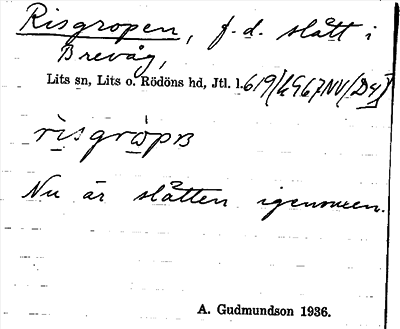 Risgropen, f.d. slått i
Brevåg,
Lits sn, Lits o. Rödöns hd, Jtl. l. 619/
rìsgrὼpʙ
Nu är slåtten igenvuxen.
A. Gudmundson 1936.